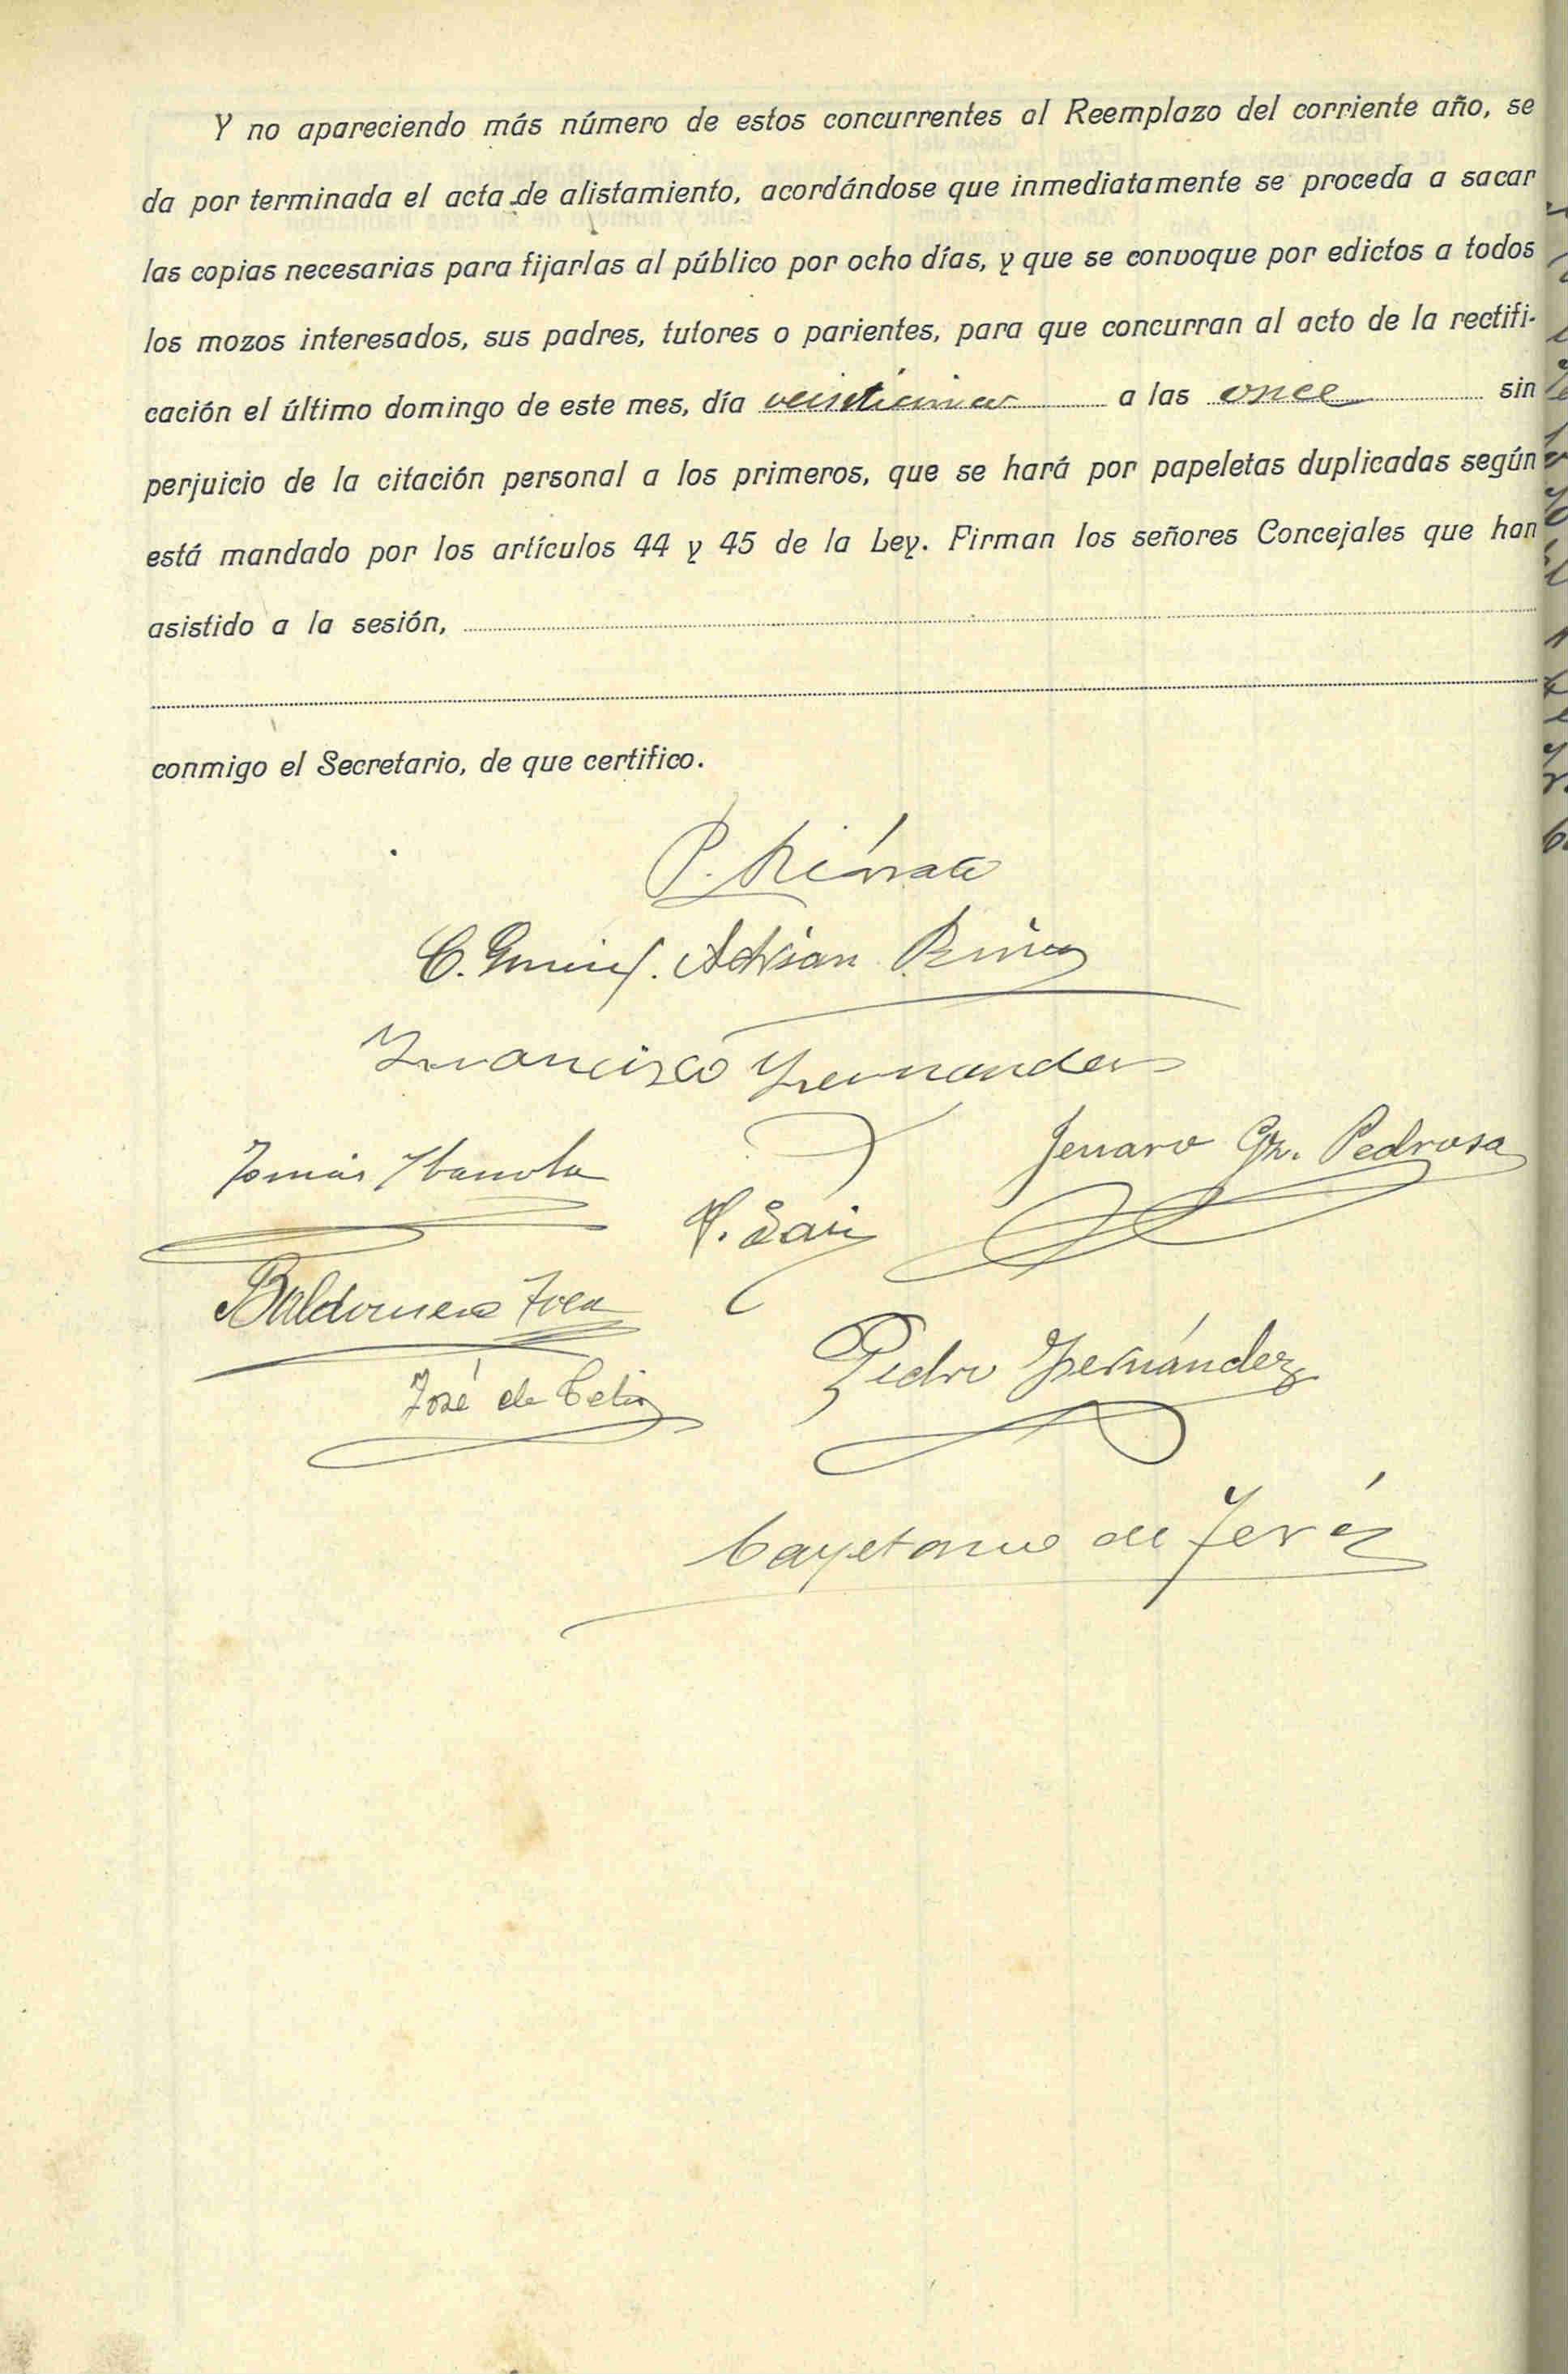 Y no apareciendo más número de estos concurrentes al Reemplazo del corriente año, se
da por terminada el acta de alistamiento, acordándose que inmediatamente se proceda a sacar
las copias necesarias para fijarlas al público por ocho días, y que se convoque por edictos a todos
los mozos interesados, sus padres, tutores o parientes, para que concurran al acto de la rectifi-
cación el último domingo de este mes, día veinticinco a las once sin
perjuicio de la citación personal a los primeros, que se hará por papeletas duplicadas según
está mandado por los artículos 44 y 45 de la Ley. Firman los señores Concejales que han
asistido a la sesión,
conmigo el Secretario, de que certifico.
P.
C. Adrian
Francisco Fernandez
Tomás
Jenaro Gz. Pedrosa
Baldomero
Pedro Hernández
José de
Cayetano de